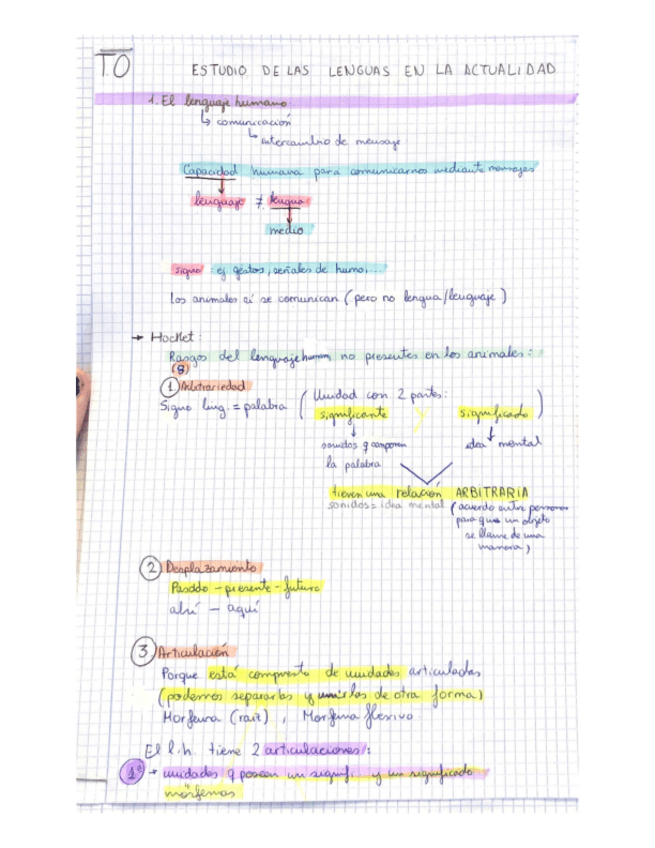 T0
ESTUDIO DE LAS LENGUAS EN LA ACTUALIDAD
1. El lenguaje humano
↳ comunicación
↳ intercambio de mensaje
Capacidad humana para comunicarnos mediante mensajes
lenguaje ≠ lengua
medio
signo: ej gestos, señales de humo....
Los animales sí se comunican (pero no lengua/lenguaje)
→ Hocket:
Rasgos del lenguaje humano no presentes en los animales:
(8)
① Arbitrariedad
Signo ling. = palabra (Unidad con 2 partes:
significante y significado)
sonidos q componen la palabra
idea mental
tienen una relación ARBITRARIA
sonidos = idea mental (acuerdo entre personas
para que un objeto
se llame de una
manera)
② Desplazamiento
Pasado - presente - futuro
ahí - aquí
③ Articulación
Porque está compuesto de unidades articuladas
(podemos separarlas y unirlas de otra forma)
Morfema (raíz), Morfema flexivo
El l.h. tiene 2 articulaciones:
1º → unidades q poseen un signifi. y un significado
morfemas